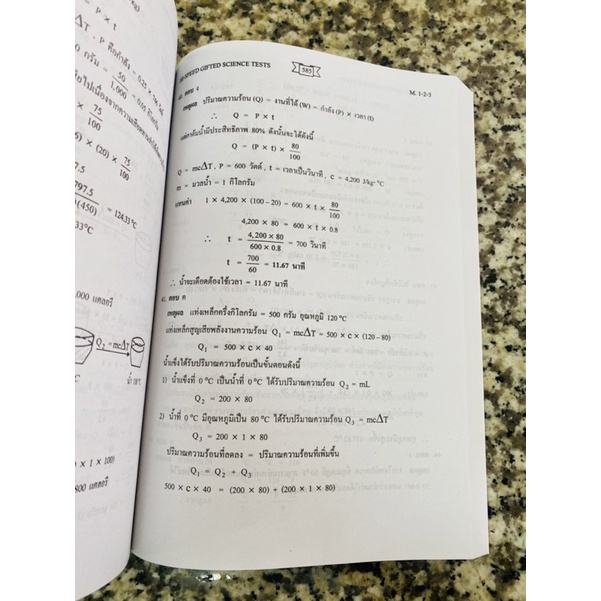 กรัม
× P × t
mcΔT
50
1,000
75
100
) × (20) × 75/100
797.5
(450) = 124.33 °C
.33°C
.000 แคลอรี
Q₂ = mcΔT
0 × 1 × 100)
800 แคลอรี
SPEED GIFTED SCIENCE TESTS
585
M. 1-2-3
ตอบ
เหตุผล ปริมาณความร้อน (Q) = งานที่ได้ (W) = กำลัง (P) × เวลา (t)
∴ Q = P × t
แต่กาต้มน้ำมีประสิทธิภาพ 80% ดังนั้นจะได้ดังนี้
Q = (P × t) × 80/100
Q = mcΔT , P = 600 วัตต์ , t = เวลาเป็นวินาที , c = 4,200 J/kg·°C
m = มวลน้ำ = 1 กิโลกรัม
แทนค่า 1 × 4,200 × (100 – 20) = 600 × t × 80/100
4,200 × 80 = 600 × t × 0.8
∴ t = 4,200 × 80 / 600 × 0.8 = 700 วินาที
t = 700/60 = 11.67 นาที
∴ น้ำจะเดือดต้องใช้เวลา = 11.67 นาที
ตอบ ค
เหตุผล แท่งเหล็กครึ่งกิโลกรัม = 500 กรัม อุณหภูมิ 120 °C
แท่งเหล็กสูญเสียพลังงานความร้อน Q₁ = mcΔT = 500 × c × (120 – 80)
Q₁ = 500 × c × 40
น้ำแข็งได้รับปริมาณความร้อนเป็นขั้นตอนดังนี้
1) น้ำแข็งที่ 0 °C เป็นน้ำที่ 0 °C ได้รับปริมาณความร้อน Q₂ = mL
Q₂ = 200 × 80
2) น้ำที่ 0 °C มีอุณหภูมิเป็น 80 °C ได้รับปริมาณความร้อน Q₃ = mcΔT
Q₃ = 200 × 1 × 80
ปริมาณความร้อนที่ลดลง = ปริมาณความร้อนที่เพิ่มขึ้น
Q₁ = Q₂ + Q₃
500 × c × 40 = (200 × 80) + (200 × 1 × 80)